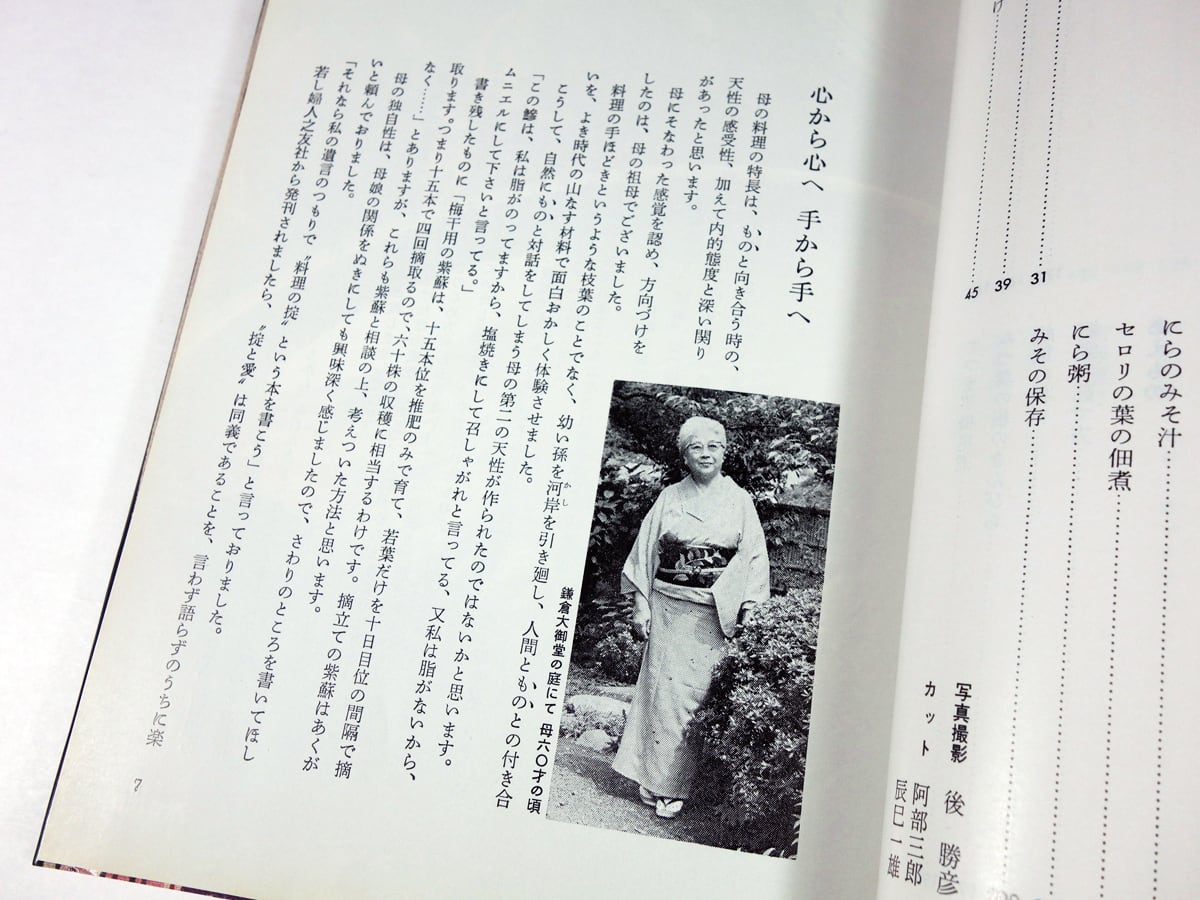 け
31
39
45
にらのみそ汁
セロリの葉の佃煮
にら粥
みその保存
写真撮影 後 勝彦
カット 阿部三郎
辰巳一雄
心から心へ 手から手へ
母の料理の特長は、ものと向き合う時の、
天性の感受性、加えて内的態度と深い関り
があったと思います。
母にそなわった感覚を認め、方向づけを
したのは、母の祖母でございました。
料理の手ほどきというような枝葉のことでなく、幼い孫を河岸を引き廻し、人間とものとの付き合
かし
いを、よき時代の山なす材料で面白おかしく体験させました。
こうして、自然にものと対話をしてしまう母の第二の天性が作られたのではないかと思います。
「この鰺は、私は脂がのってますから、塩焼きにして召しゃがれと言ってる、又私は脂がないから、
ムニエルにして下さいと言ってる。」
書き残したものに「梅干用の紫蘇は、十五本位を推肥のみで育て、若葉だけを十日目位の間隔で摘
取ります。つまり十五本で四回摘取るので、六十株の収穫に相当するわけです。摘立ての紫蘇はあくが
なく……」とありますが、これらも紫蘇と相談の上、考えついた方法と思います。
母の独自性は、母娘の関係をぬきにしても興味深く感じましたので、さわりのところを書いてほし
いと頼んでおりました。
「それなら私の遺言のつもりで〝料理の掟〟という本を書こう」と言っておりました。
若し婦人之友社から発刊されましたら、〝掟と愛〟は同義であることを、言わず語らずのうちに楽
鎌倉大御堂の庭にて 母六〇才の頃
7